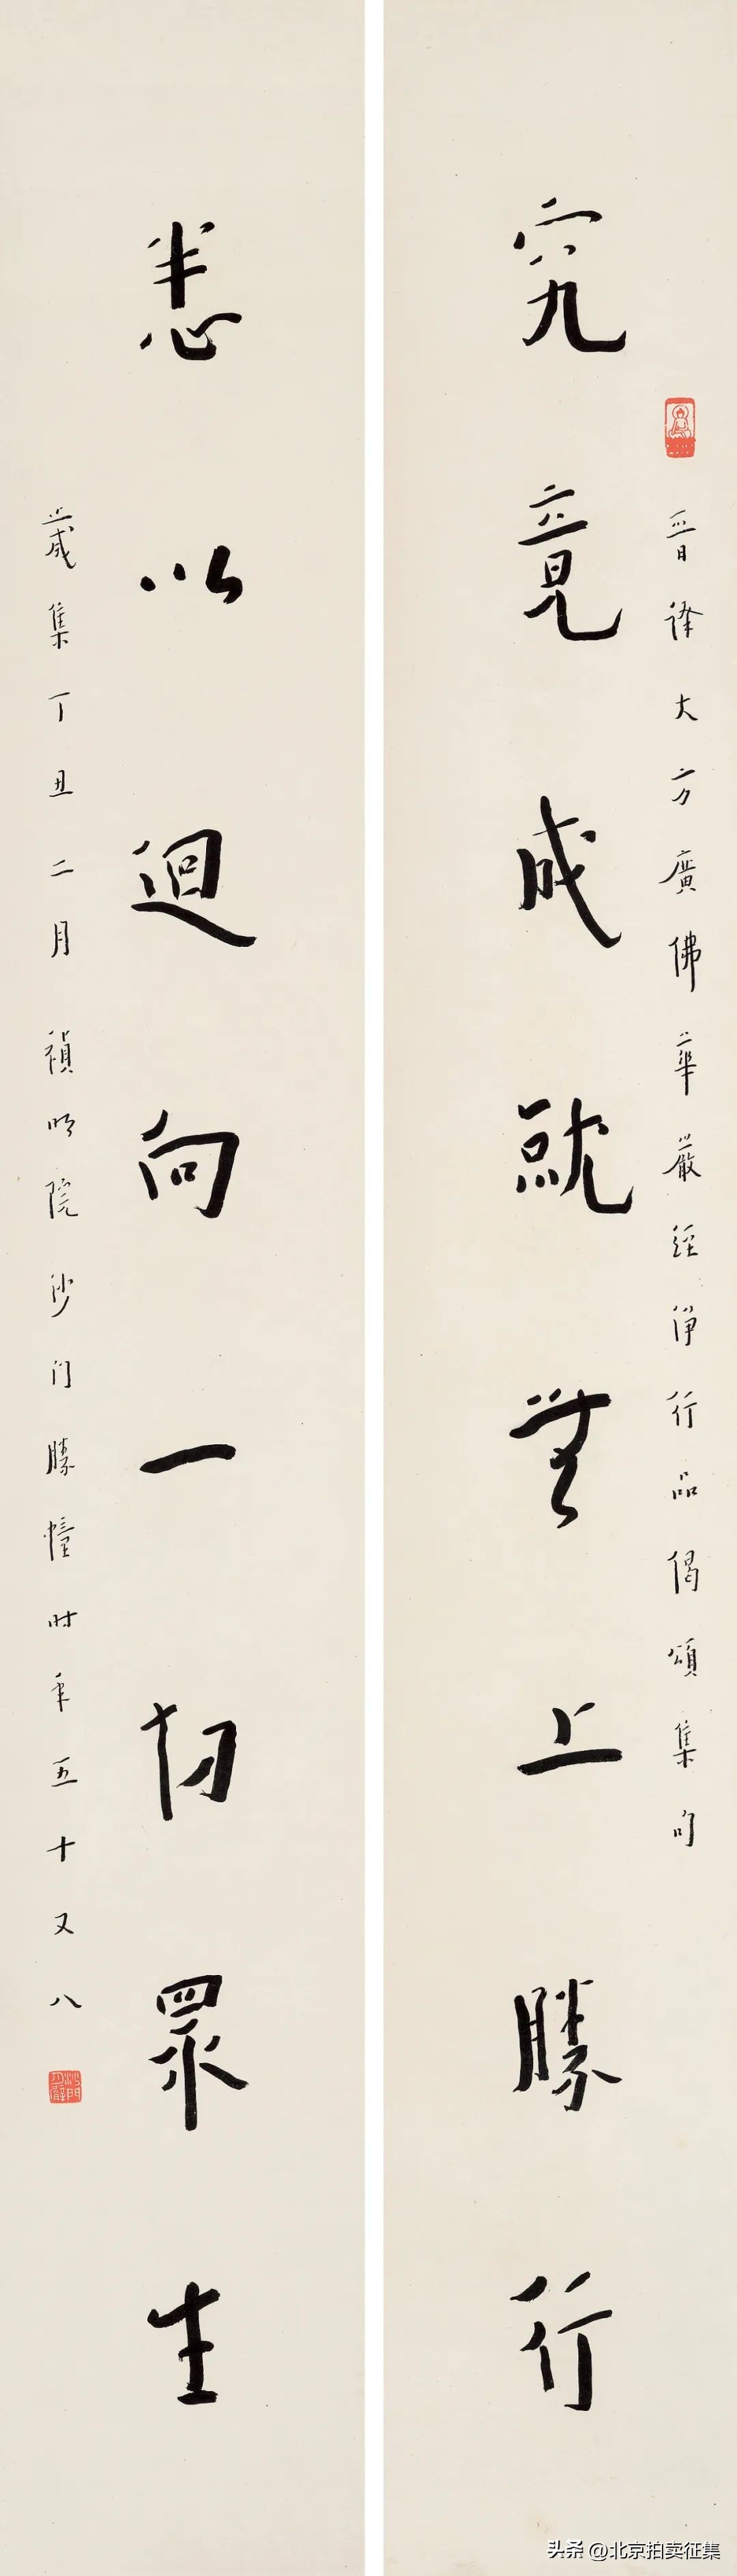 晉譯大方廣佛華嚴經淨行品偈頌集句
究竟成就無上勝行
悉以迴向一切眾生
歲集丁丑二月禎明院沙門勝幢時年五十又八
头条 @北京拍卖征集